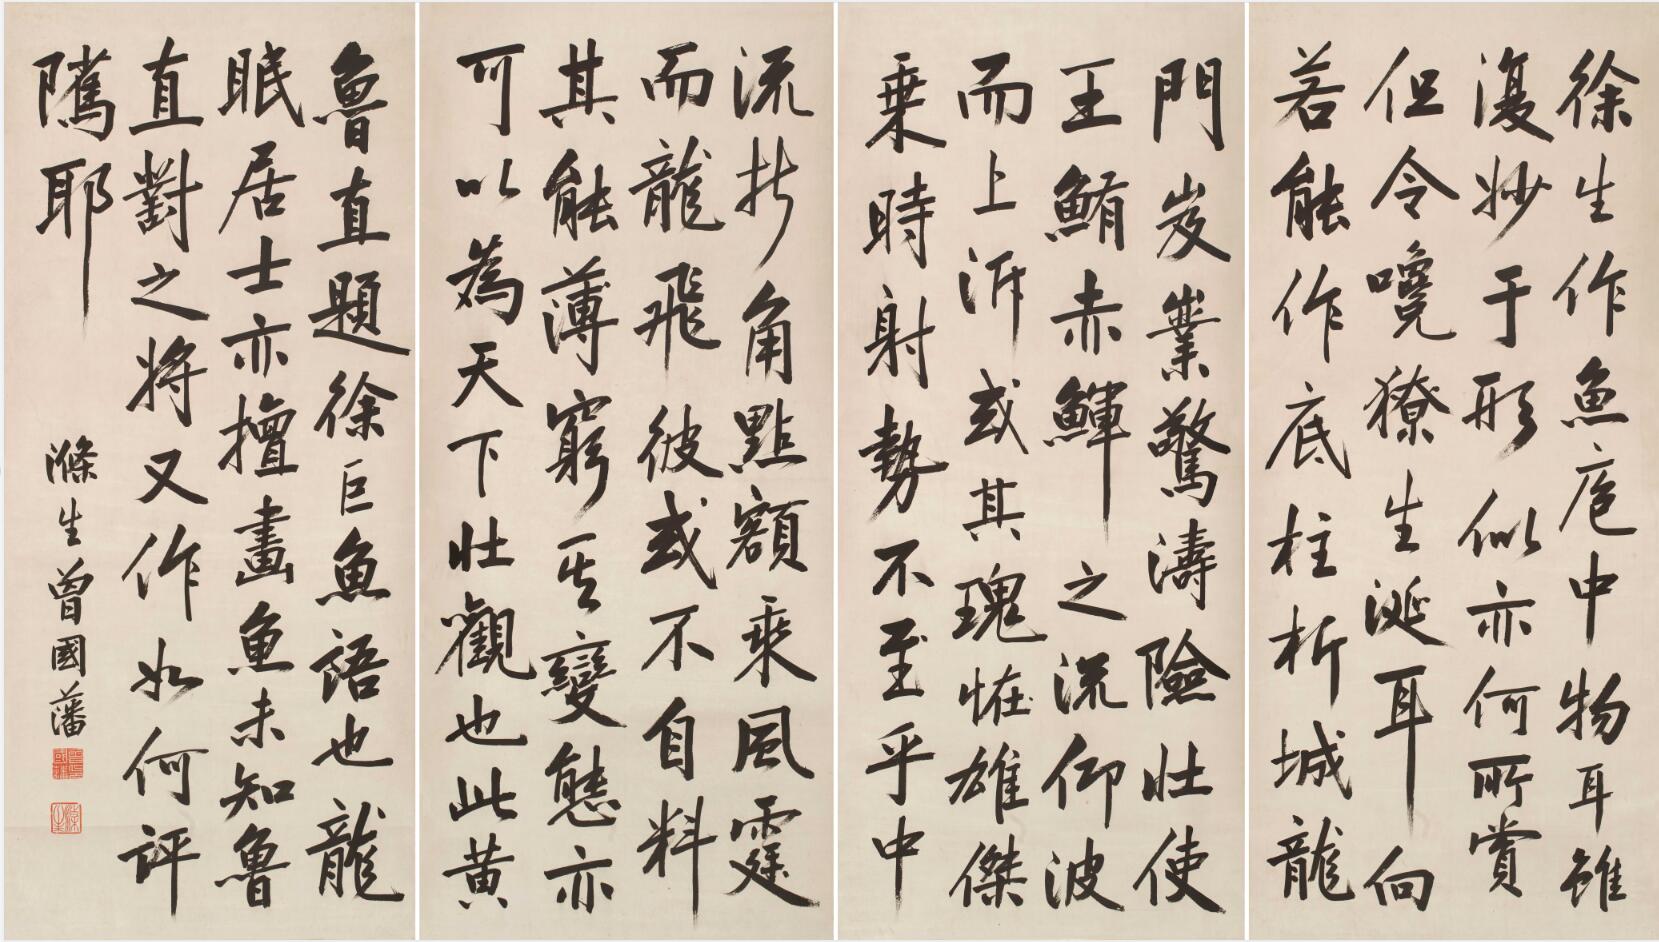 徐生作魚庖中物耳雖
復妙于形似亦何所賞
但令嚵獠生涎耳向
若能作底柱析城龍
門岌業驚濤險壯使
王鮪赤鱓之流仰波
而上泝或其瑰恠雄傑
乗時射勢不至乎中
流折角點額乘風霆
而龍飛彼或不自料
其能薄窮其變態亦
可以為天下壯觀也此黄
魯直題徐巨魚語也龍
眠居士亦擅畫魚未知魯
直對之將又作如何評
隲耶
滌生曾國藩